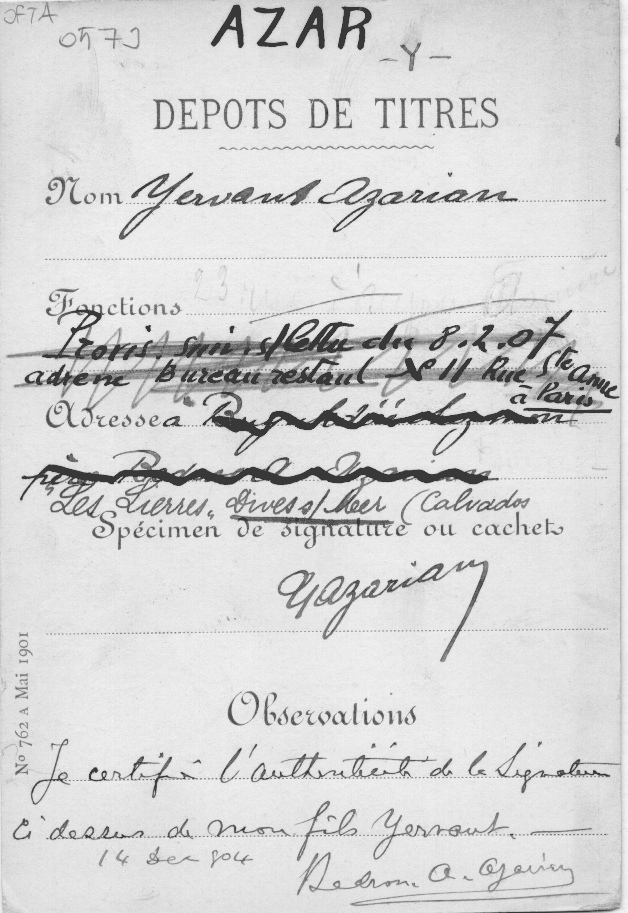 0573
AZAR
- Y -
DEPOTS DE TITRES
Nom Yervant Azarian
Fonctions
Provis. suiv. s/lettre du 8.2.07
adresse Bureau restant N 11 Rue Ste Anne
à Paris
Adresse à
"Les Lierres" Dives s/Mer (Calvados
Spécimen de signature ou cachet
YAzarian
Observations
Je certifie l'authenticité de la Signature
Ci dessus de mon fils Yervant. —
14 Dec 904
Bedros A. Azarian
No 762 A Mai 1901